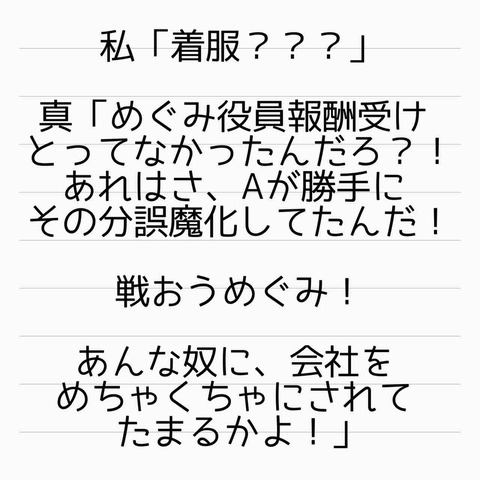 私「着服？？？」
真「めぐみ役員報酬受け
とってなかったんだろ？！
あれはさ、Aが勝手に
その分誤魔化してたんだ！
戦おうめぐみ！
あんな奴に、会社を
めちゃくちゃにされて
たまるかよ！」